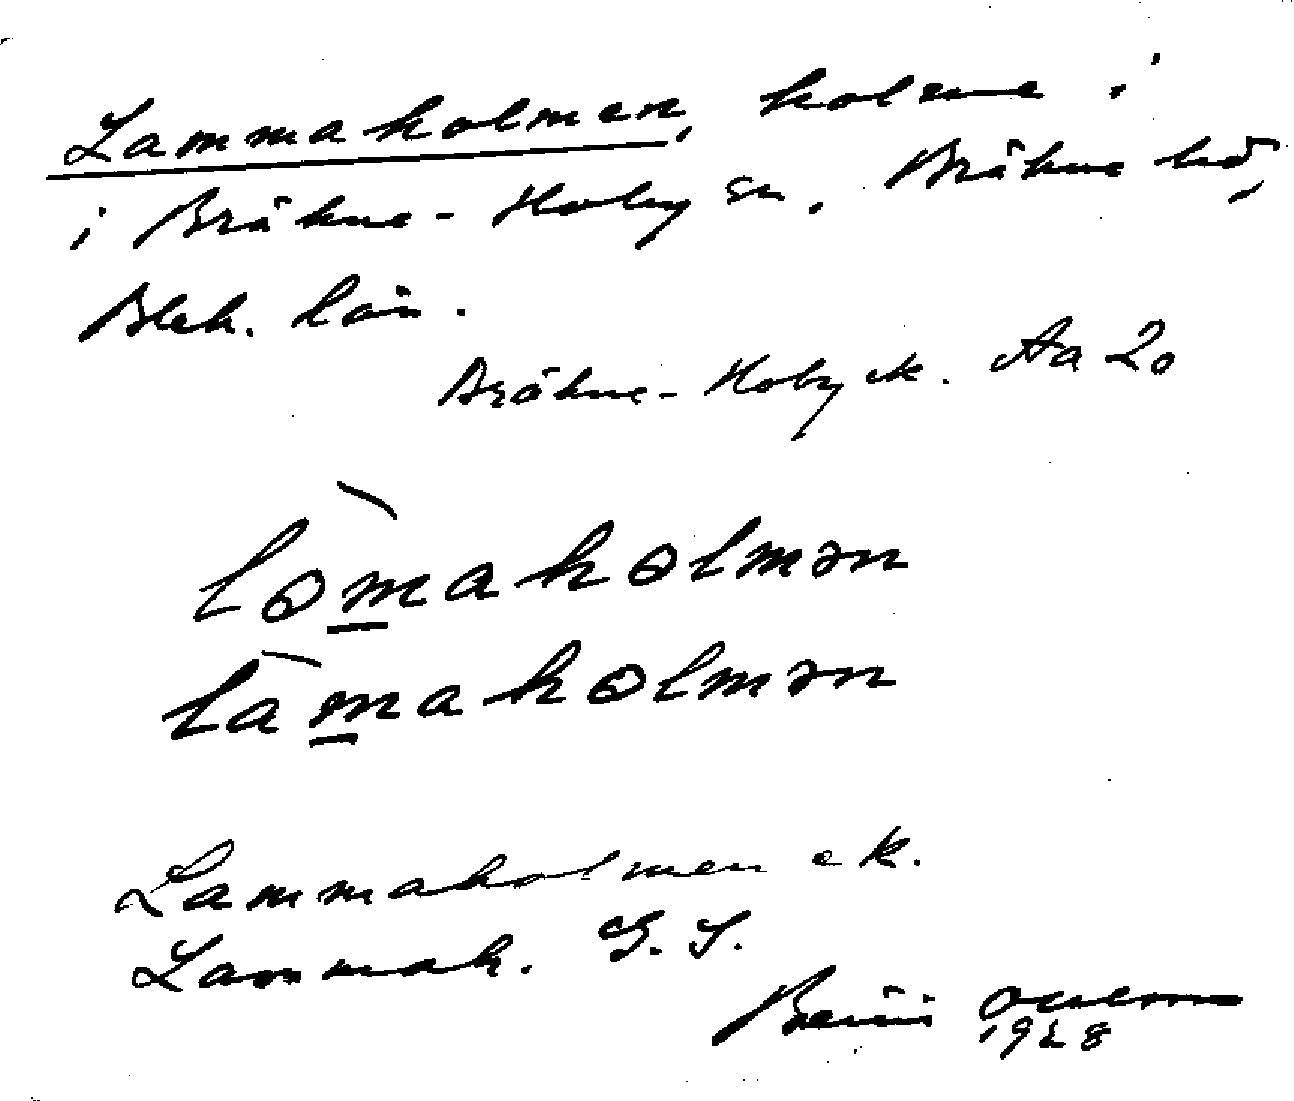 Lammaholmen, holme i
i Bräkne-Hoby sn, Bräkne hd,
Blek. län.
Bräkne-Hoby ek. Aa 20
lòmahɔlmən
làmahɔlmən
Lammaholmen ek.
Lammah. G. S.
1928